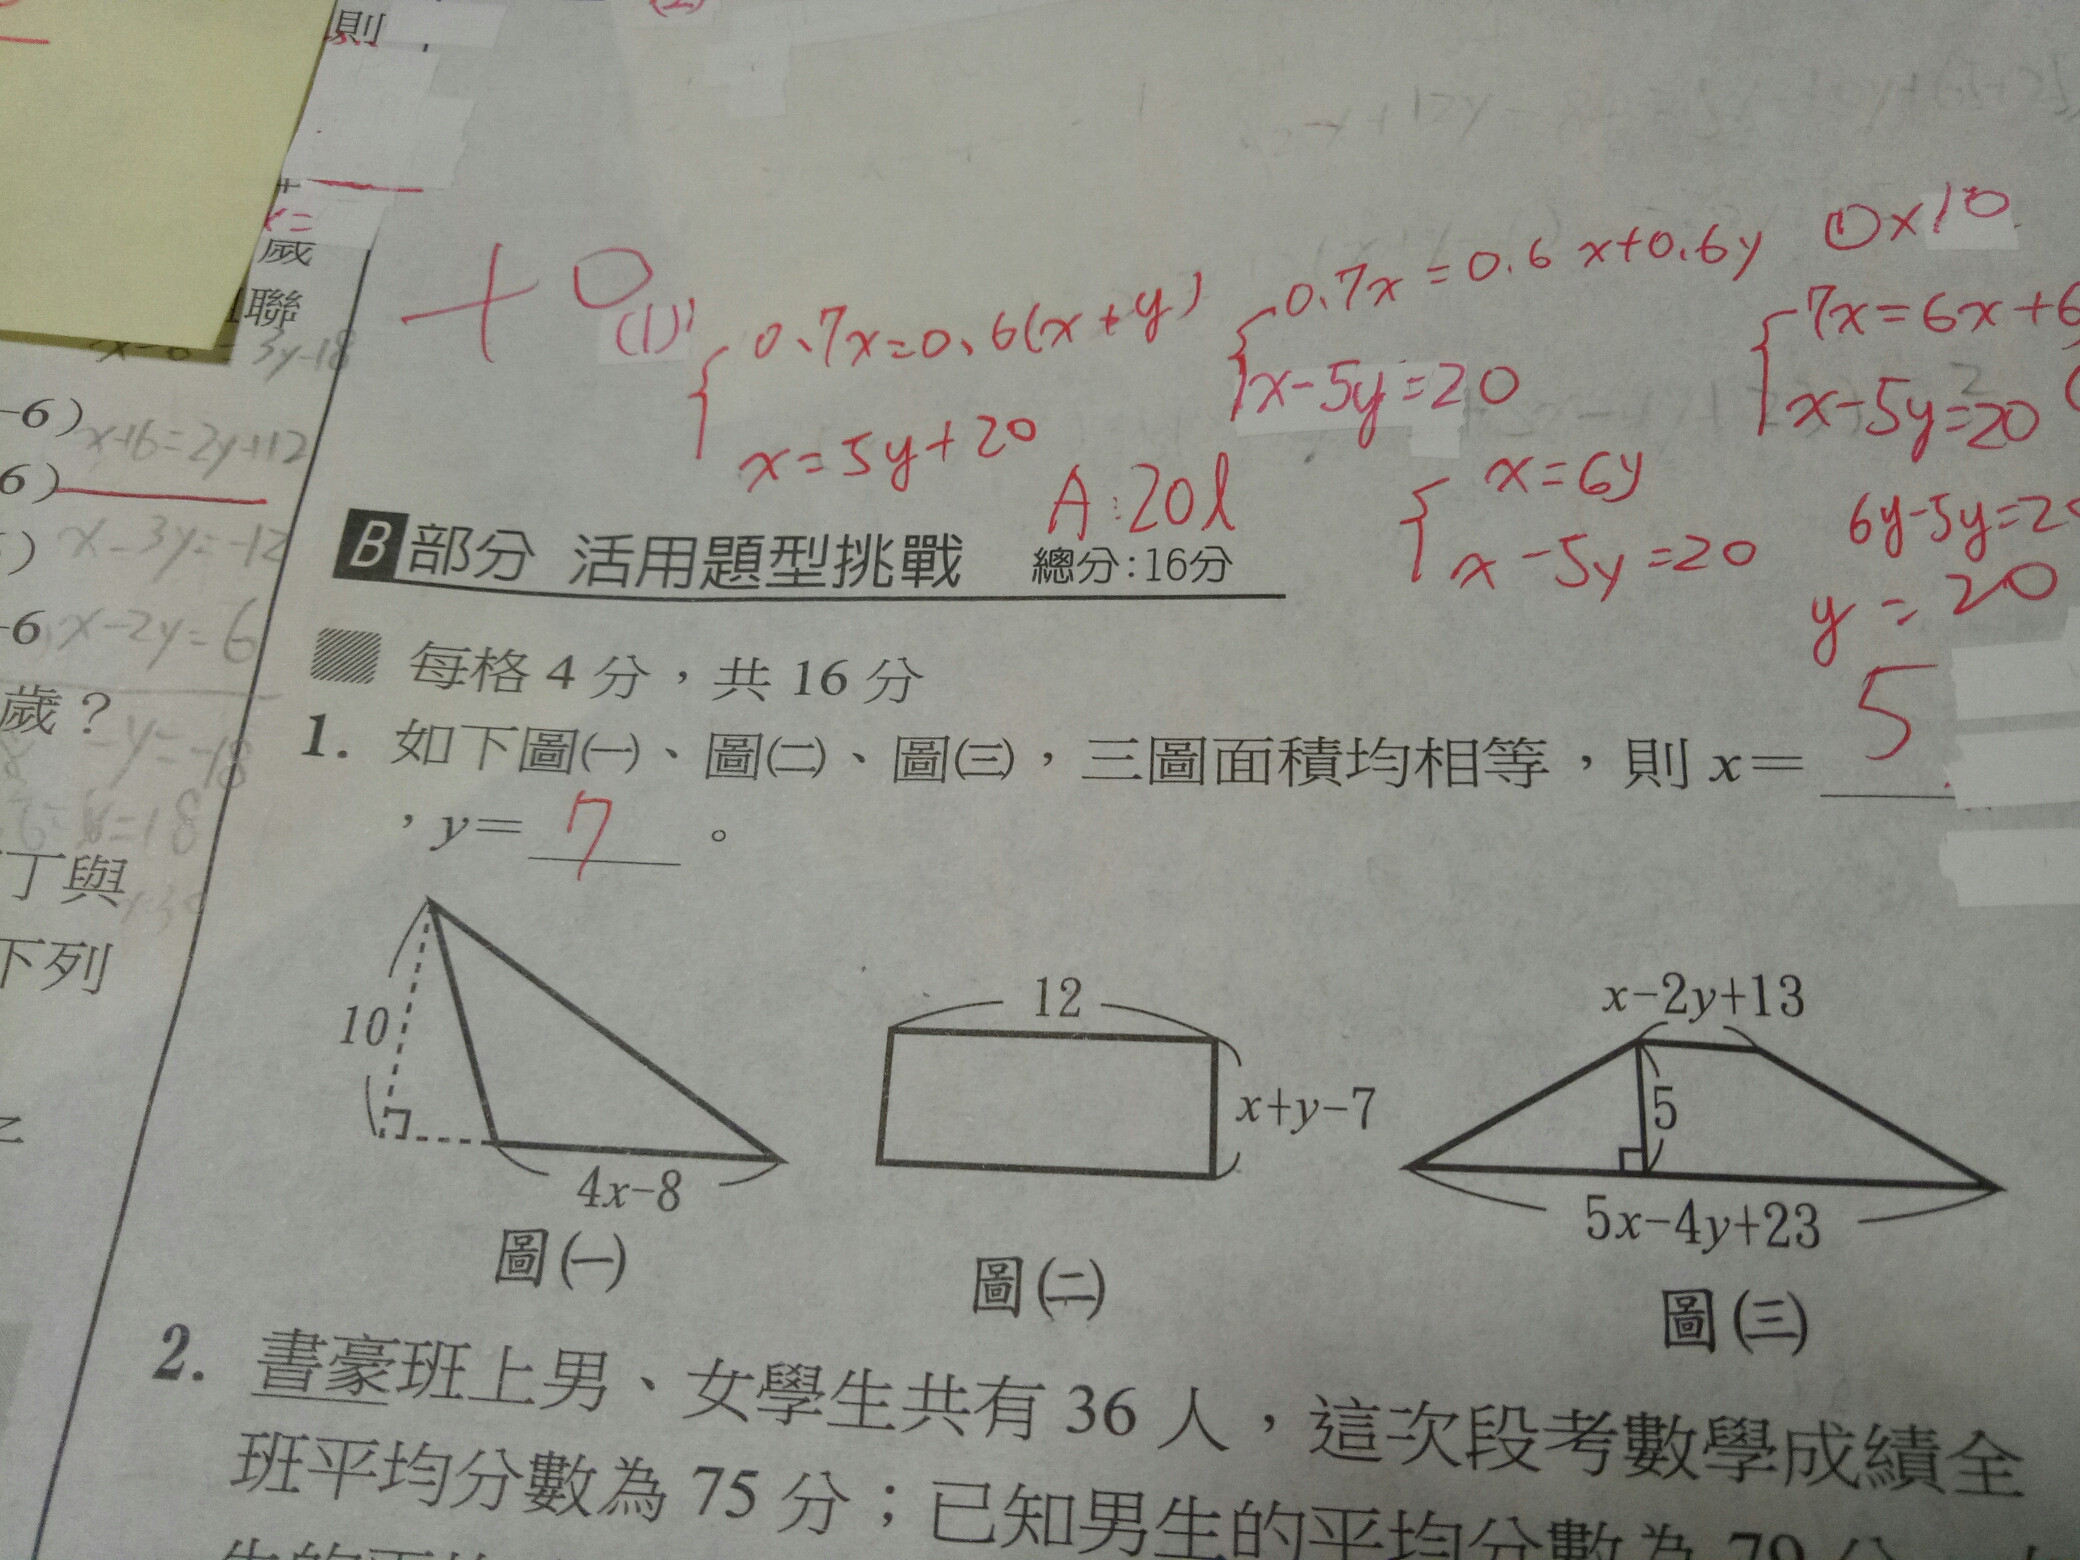 則
x=
歲
聯
x-6=3y-18
-6)
x+6=2y+12
6)
x-3y=-12
-6
x-2y=6
歲?
-y=-18
y=18
丁與
下列
+0
(1)
0.7x=0.6(x+y)
x=5y+20
0.7x=0.6x+0.6y
x-5y=20
①×10
7x=6x+6
x-5y=20
A:20l
x=6y
x-5y=20
6y-5y=20
y=20
B 部分 活用題型挑戰 總分:16分
每格 4 分,共 16 分
1. 如下圖㈠、圖㈡、圖㈢,三圖面積均相等,則 x= 5
,y= 7 。
10
4x-8
圖㈠
12
x+y-7
圖㈡
x-2y+13
5
5x-4y+23
圖㈢
2. 書豪班上男、女學生共有 36 人,這次段考數學成績全
班平均分數為 75 分;已知男生的平均分數為 79 分